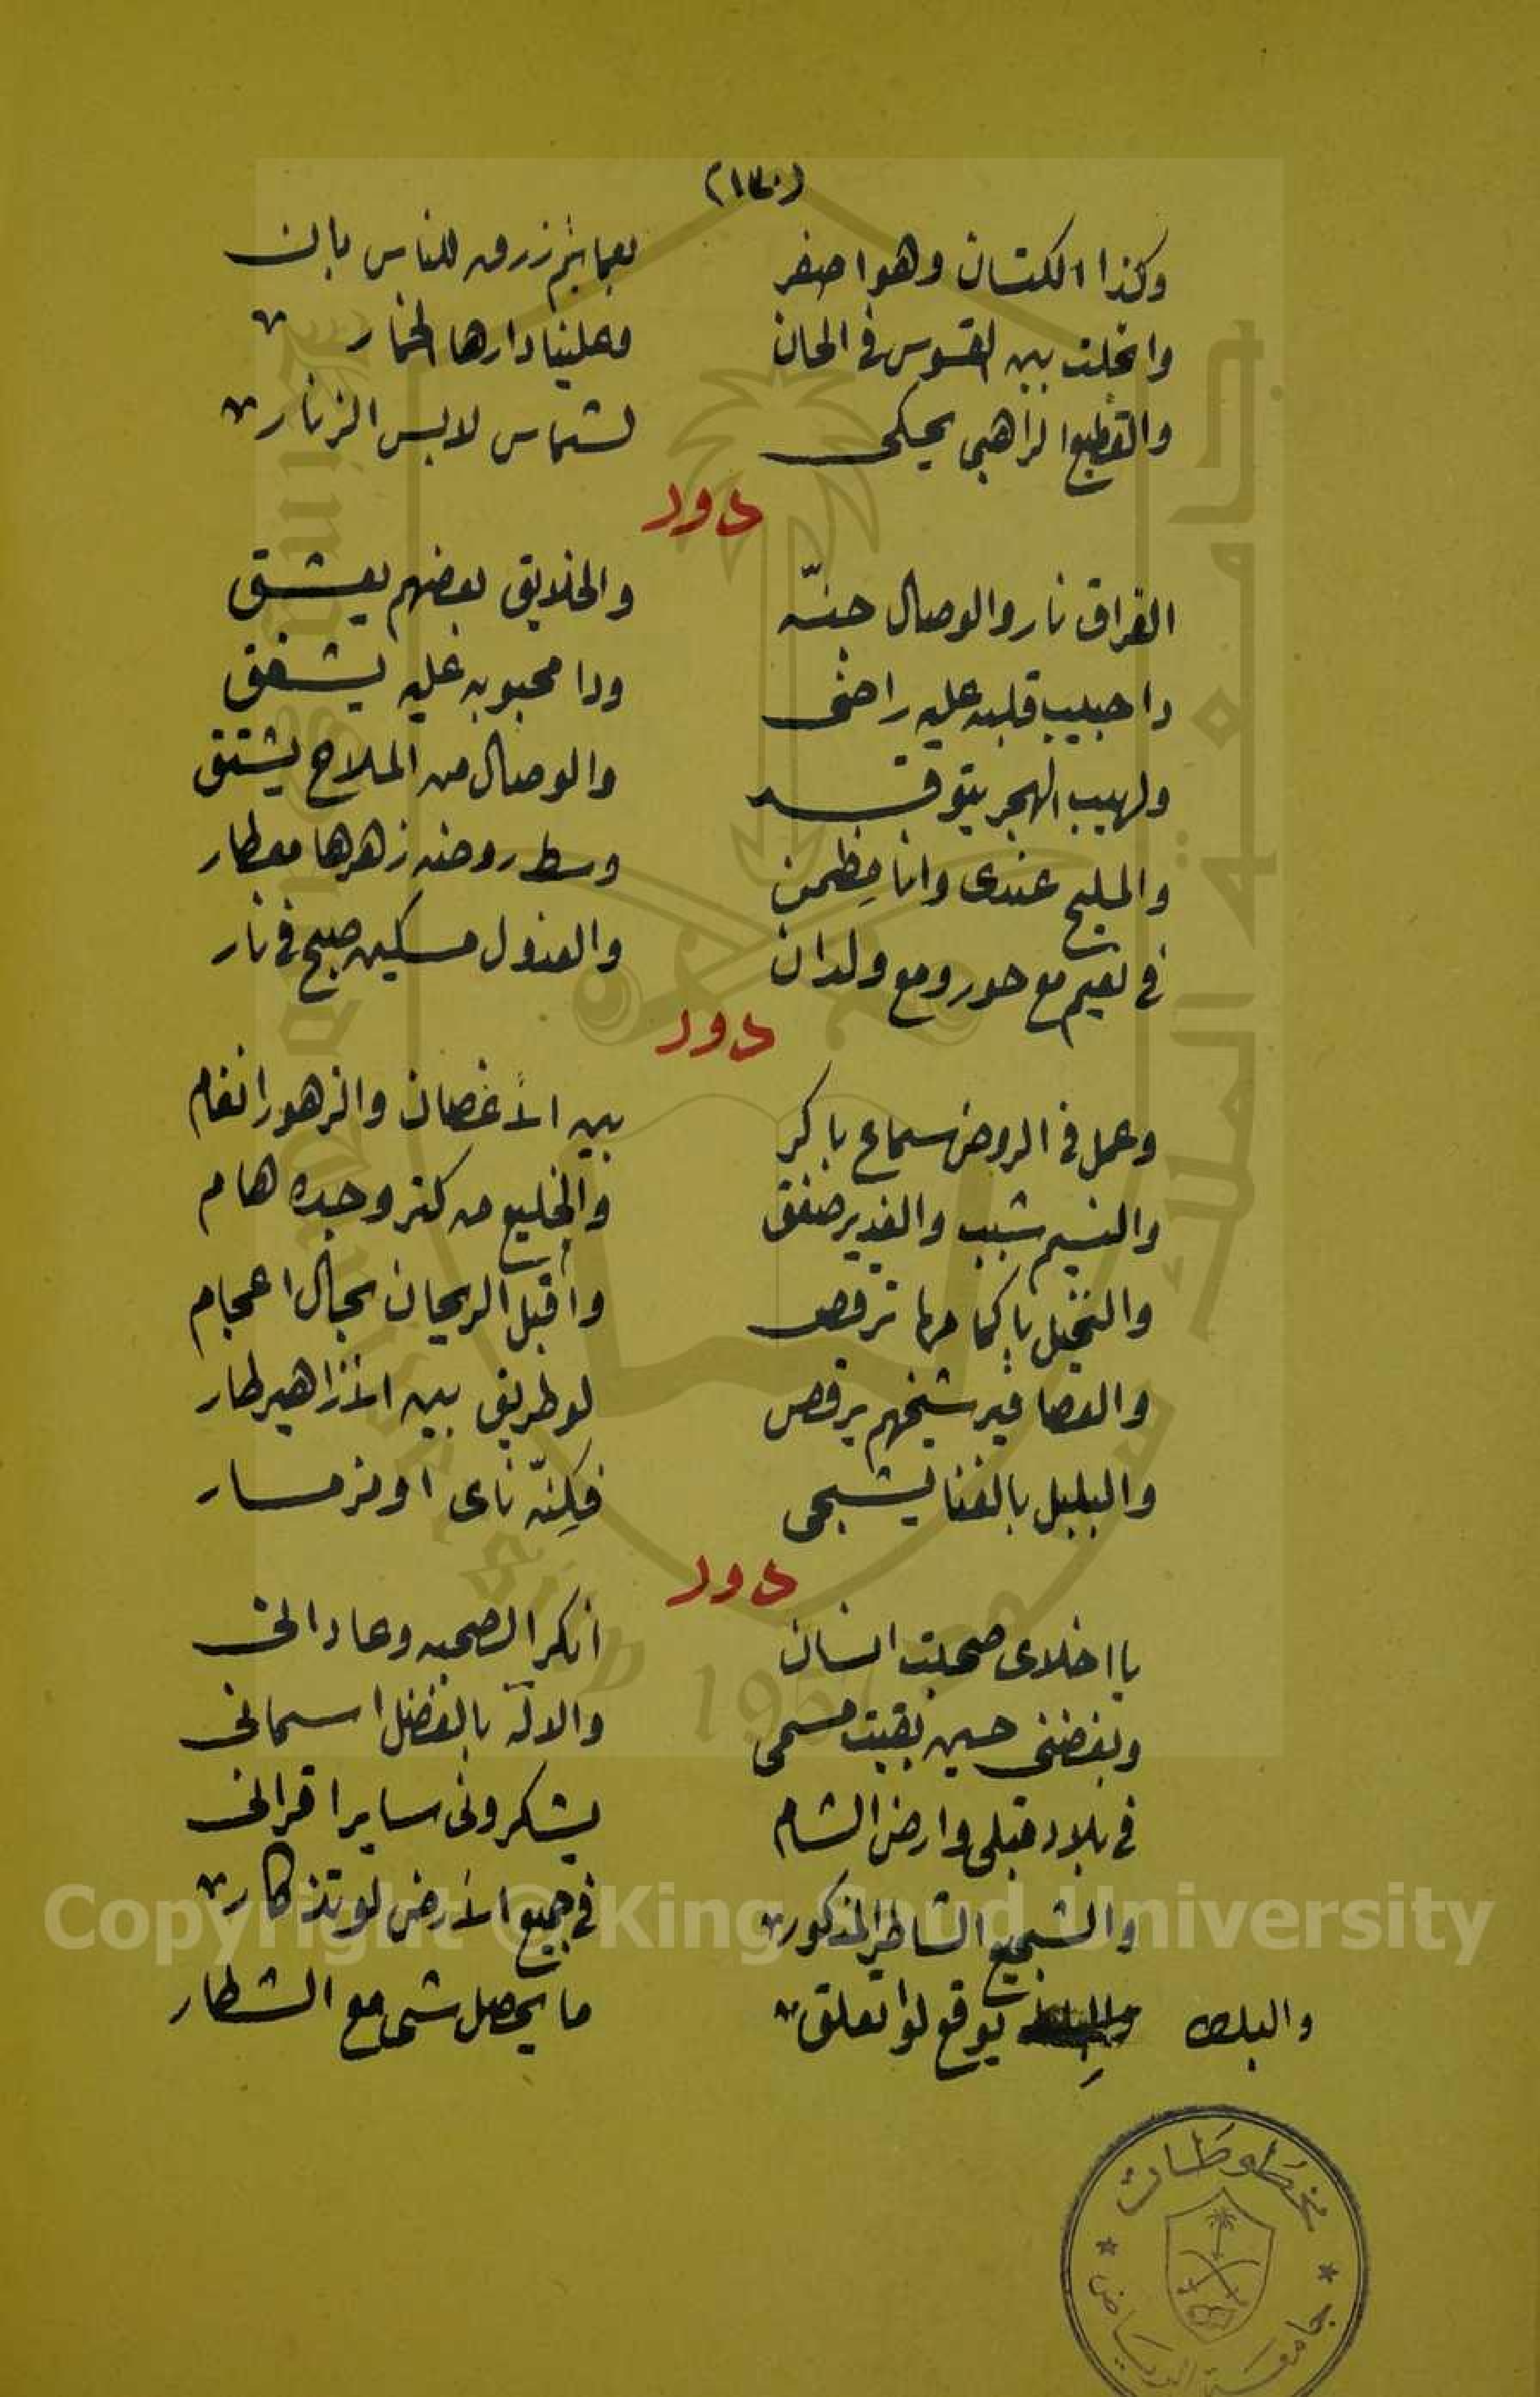 (١٧٠)
وكذا الكتان وهو اصفر بعمايم زرق للناس بان
وانجلت بين القسوس في الحان وعلينا دارها الخمار
والقطيع الراهبي يحكى لشماس لابس الزنار
دور
الفراق نار والوصال جنّه والخلايق بعضهم يعشق
دا حبيب قلبه عليه راضى ودا محبوبه عليه يشفق
ولهيب الهجر يتوقد والوصال من الملاح يشتق
والمليح عندى وانا مطمن وسط روضه زهرها معطار
في نعيم مع حور ومع ولدان والعذول مسكين صبح في نار
دور
وعمل في الروض سماع باكر بين الأغصان والزهور انغام
والنسيم شبب والغدير صفق والخليع من كتر وجده هام
والنخيل باكمامها ترقص وأقبل الريحان بحال اعجام
والعصافير شيخهم يرقص لو طريق بين الأزاهير طار
والبلبل بالغنا يشجى فكنّه ناى او مزمار
دور
يا اخلاى صحبت انسان أنكر الصحبه وعادانى
وبغضنى حين بقيت مسمى والاله بالفضل اسمانى
في بلاد قبلى وارض الشام يشكرونى ساير اقرانى
والشجيع الشاطر المذكور في جميع الأرض لو تذكار
والبلص يوقع لو اتعلق ما يحصل شى مع الشطار
مخطوطات
جامعة الرياض
جامعة الملك سعود
King Saud University
1957
Copyright © King Saud University